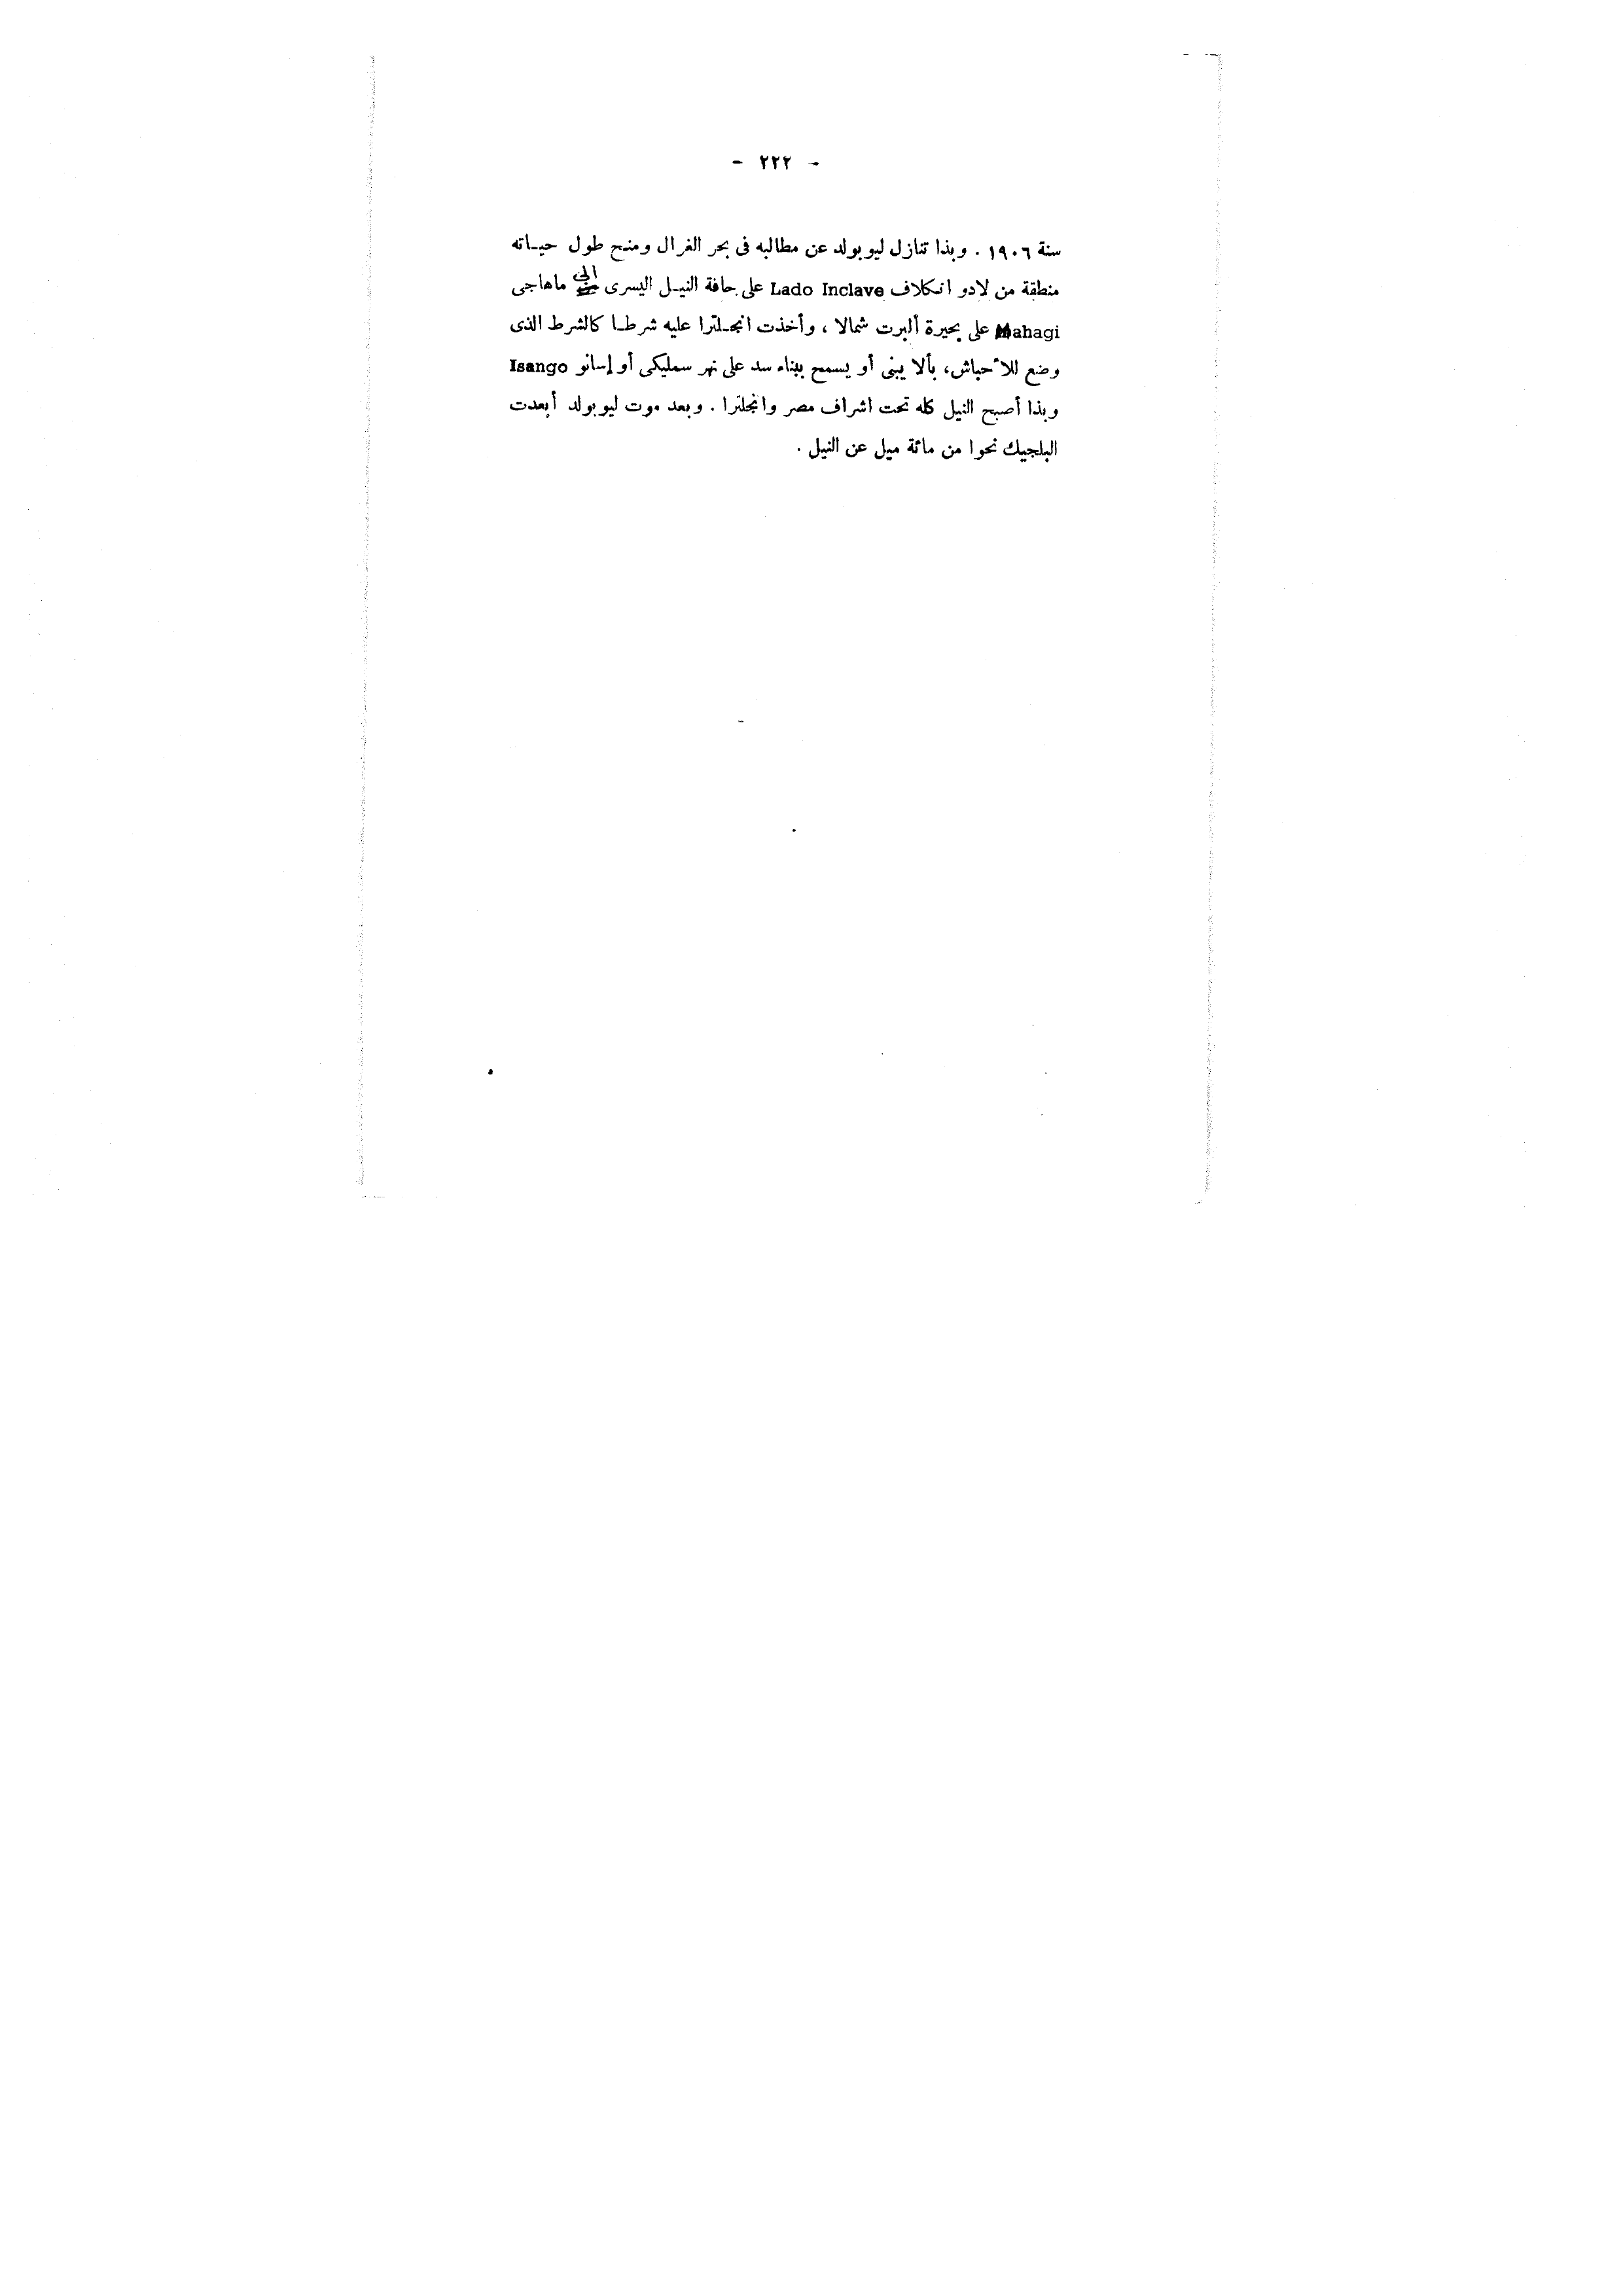 - ٢٢٢ -
سنة ١٩٠٦ . وبذا تنازل ليوبولد عن مطالبه فى بحر الغرال ومنح طول حياته
منطقة من لادو انكلاف Lado Inclave على حافة النيل اليسرى الى ماهاجى
Mahagi على بحيرة ألبرت شمالا ، وأخذت انجلترا عليه شرطا كالشرط الذى
وضع للأحباش، بألا يبنى أو يسمح ببناء سد على نهر سمليكى أو إسانو Isango
وبذا أصبح النيل كله تحت اشراف مصر وانجلترا . وبعد موت ليوبولد أبعدت
البلجيك نحوا من مائة ميل عن النيل .